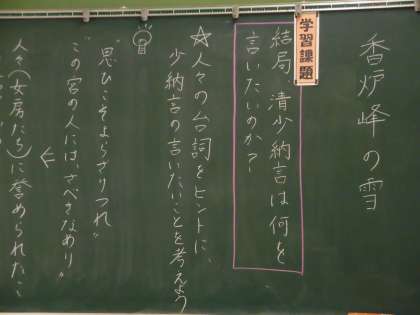 香炉峰の雪
学習課題
結局、清少納言は何を
言いたいのか?
☆人々の台詞をヒントに、
少納言の言いたいことを考えよう
"思ひこそよらざりつれ"
"この宮の人には、さべきなめり"
人々(女房たち)に誉められたこ